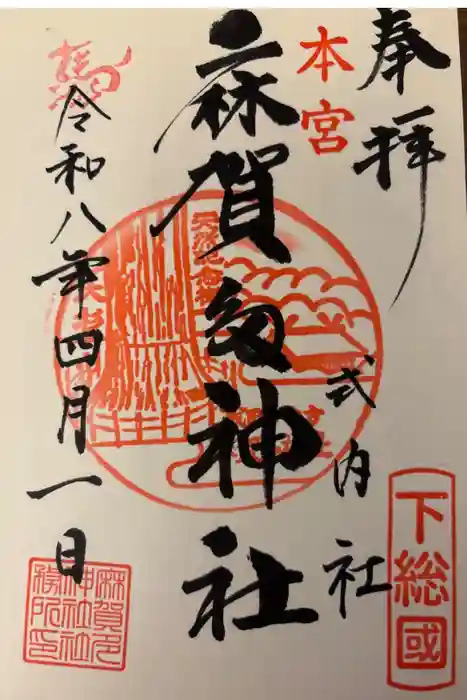 奉拝
本宮
麻賀多神社
式内社
下総國
天然記念物
令和八年四月一日
麻賀多
神社社
務所印